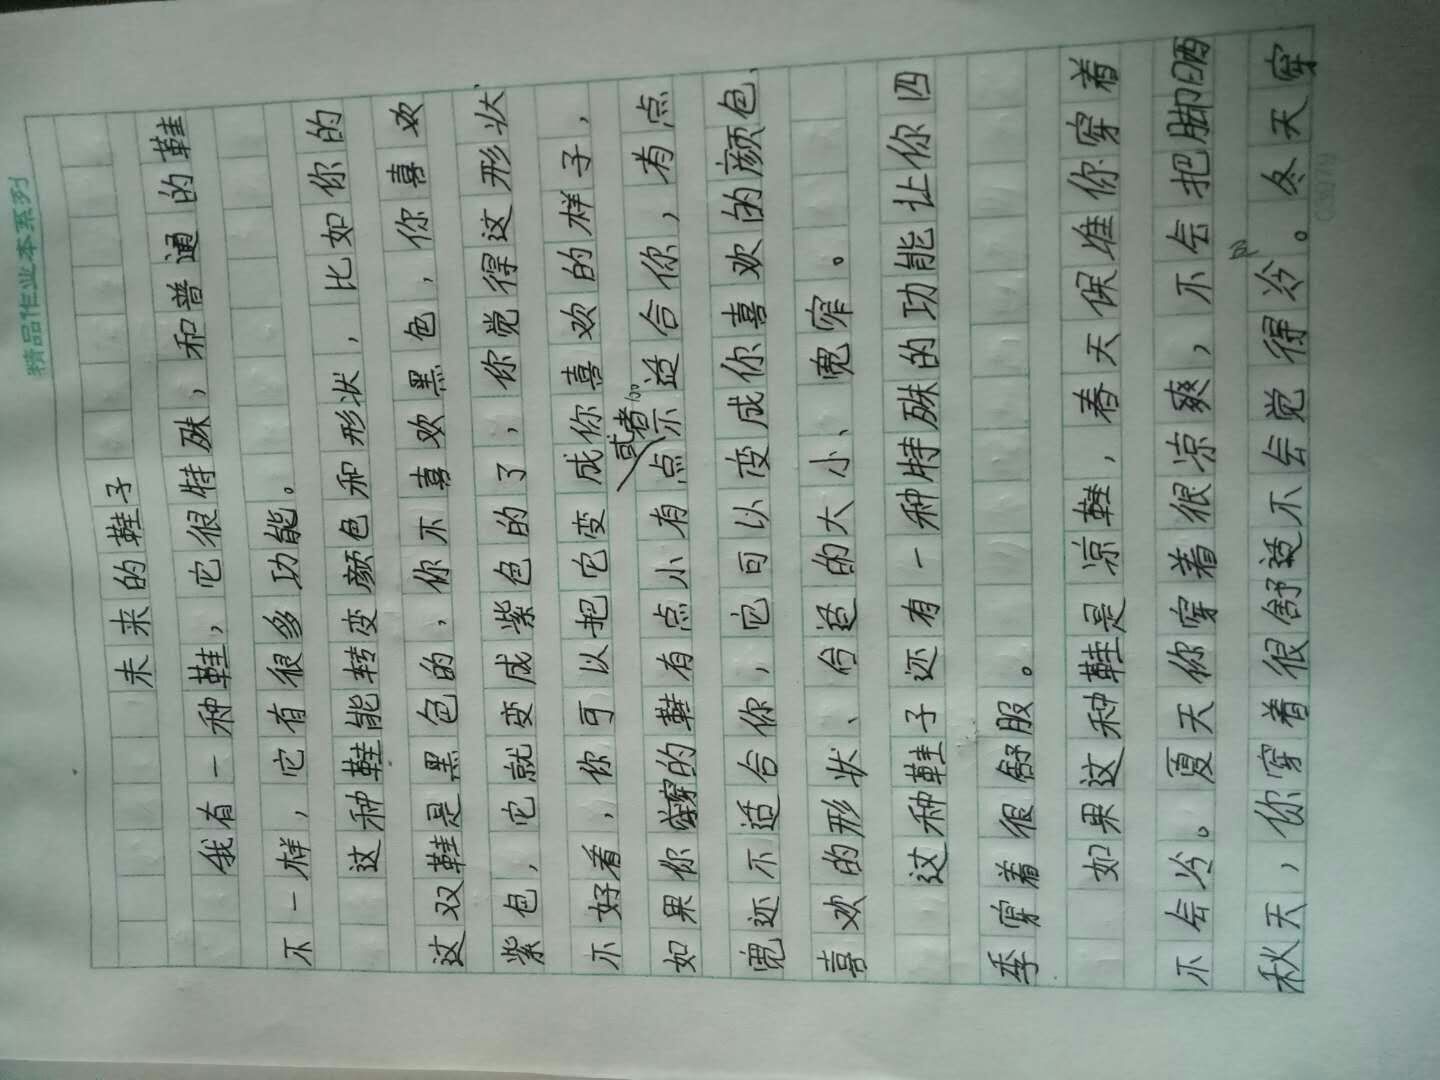 精品作业本系列
未来的鞋子
我有一种鞋，它很特殊，和普通的鞋
不一样，它有很多功能。
这种鞋能转变颜色和形状，比如你的
这双鞋是黑色的，你不喜欢黑色，你喜欢
紫色，它就变成紫色的了，你觉得这形状
不好看，你可以把它变成你喜欢的样子，
或者
如果你穿的鞋有点小有点不适合你，有点
宽还不适合你，它可以变成你喜欢的颜色、
喜欢的形状、合适的大小、宽窄。
这种鞋子还有一种特殊的功能让你四
季穿着很舒服。
如果这种鞋是凉鞋，春天保准你穿着
不会冷。夏天你穿着很凉爽，不会把脚晒
秋天，你穿着很舒适不会觉得冷。冬天穿